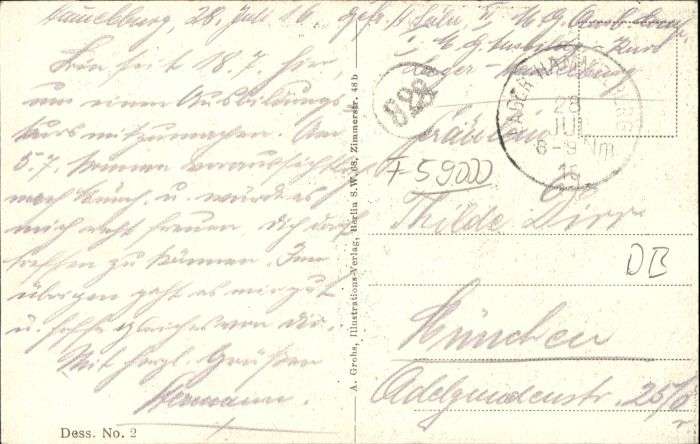 Hammelburg, 28. Juli 16.
Bin seit 18.7. hier,
um einen Ausbildungs
kurs mitzumachen. Am
5.7. komme voraussichtlich
nach Münch. u. würde es
mich sehr freuen, Dich dort
treffen zu können. Im
übrigen geht es mir gut
u. hoffe gleiches von Dir.
Mit herzl. Grüßen
Hermann.
Dess. No. 2
A. Grohs, Illustrations-Verlag, Berlin S.W. 68, Zimmerstr. 48 b
Lager-Hammelburg
LAGER HAMMELBURG
28
JUL
8-9 Nm
16
F 59000
Fräulein
Thilde Dirr
DB
München
Adelgundenstr. 25/0
r